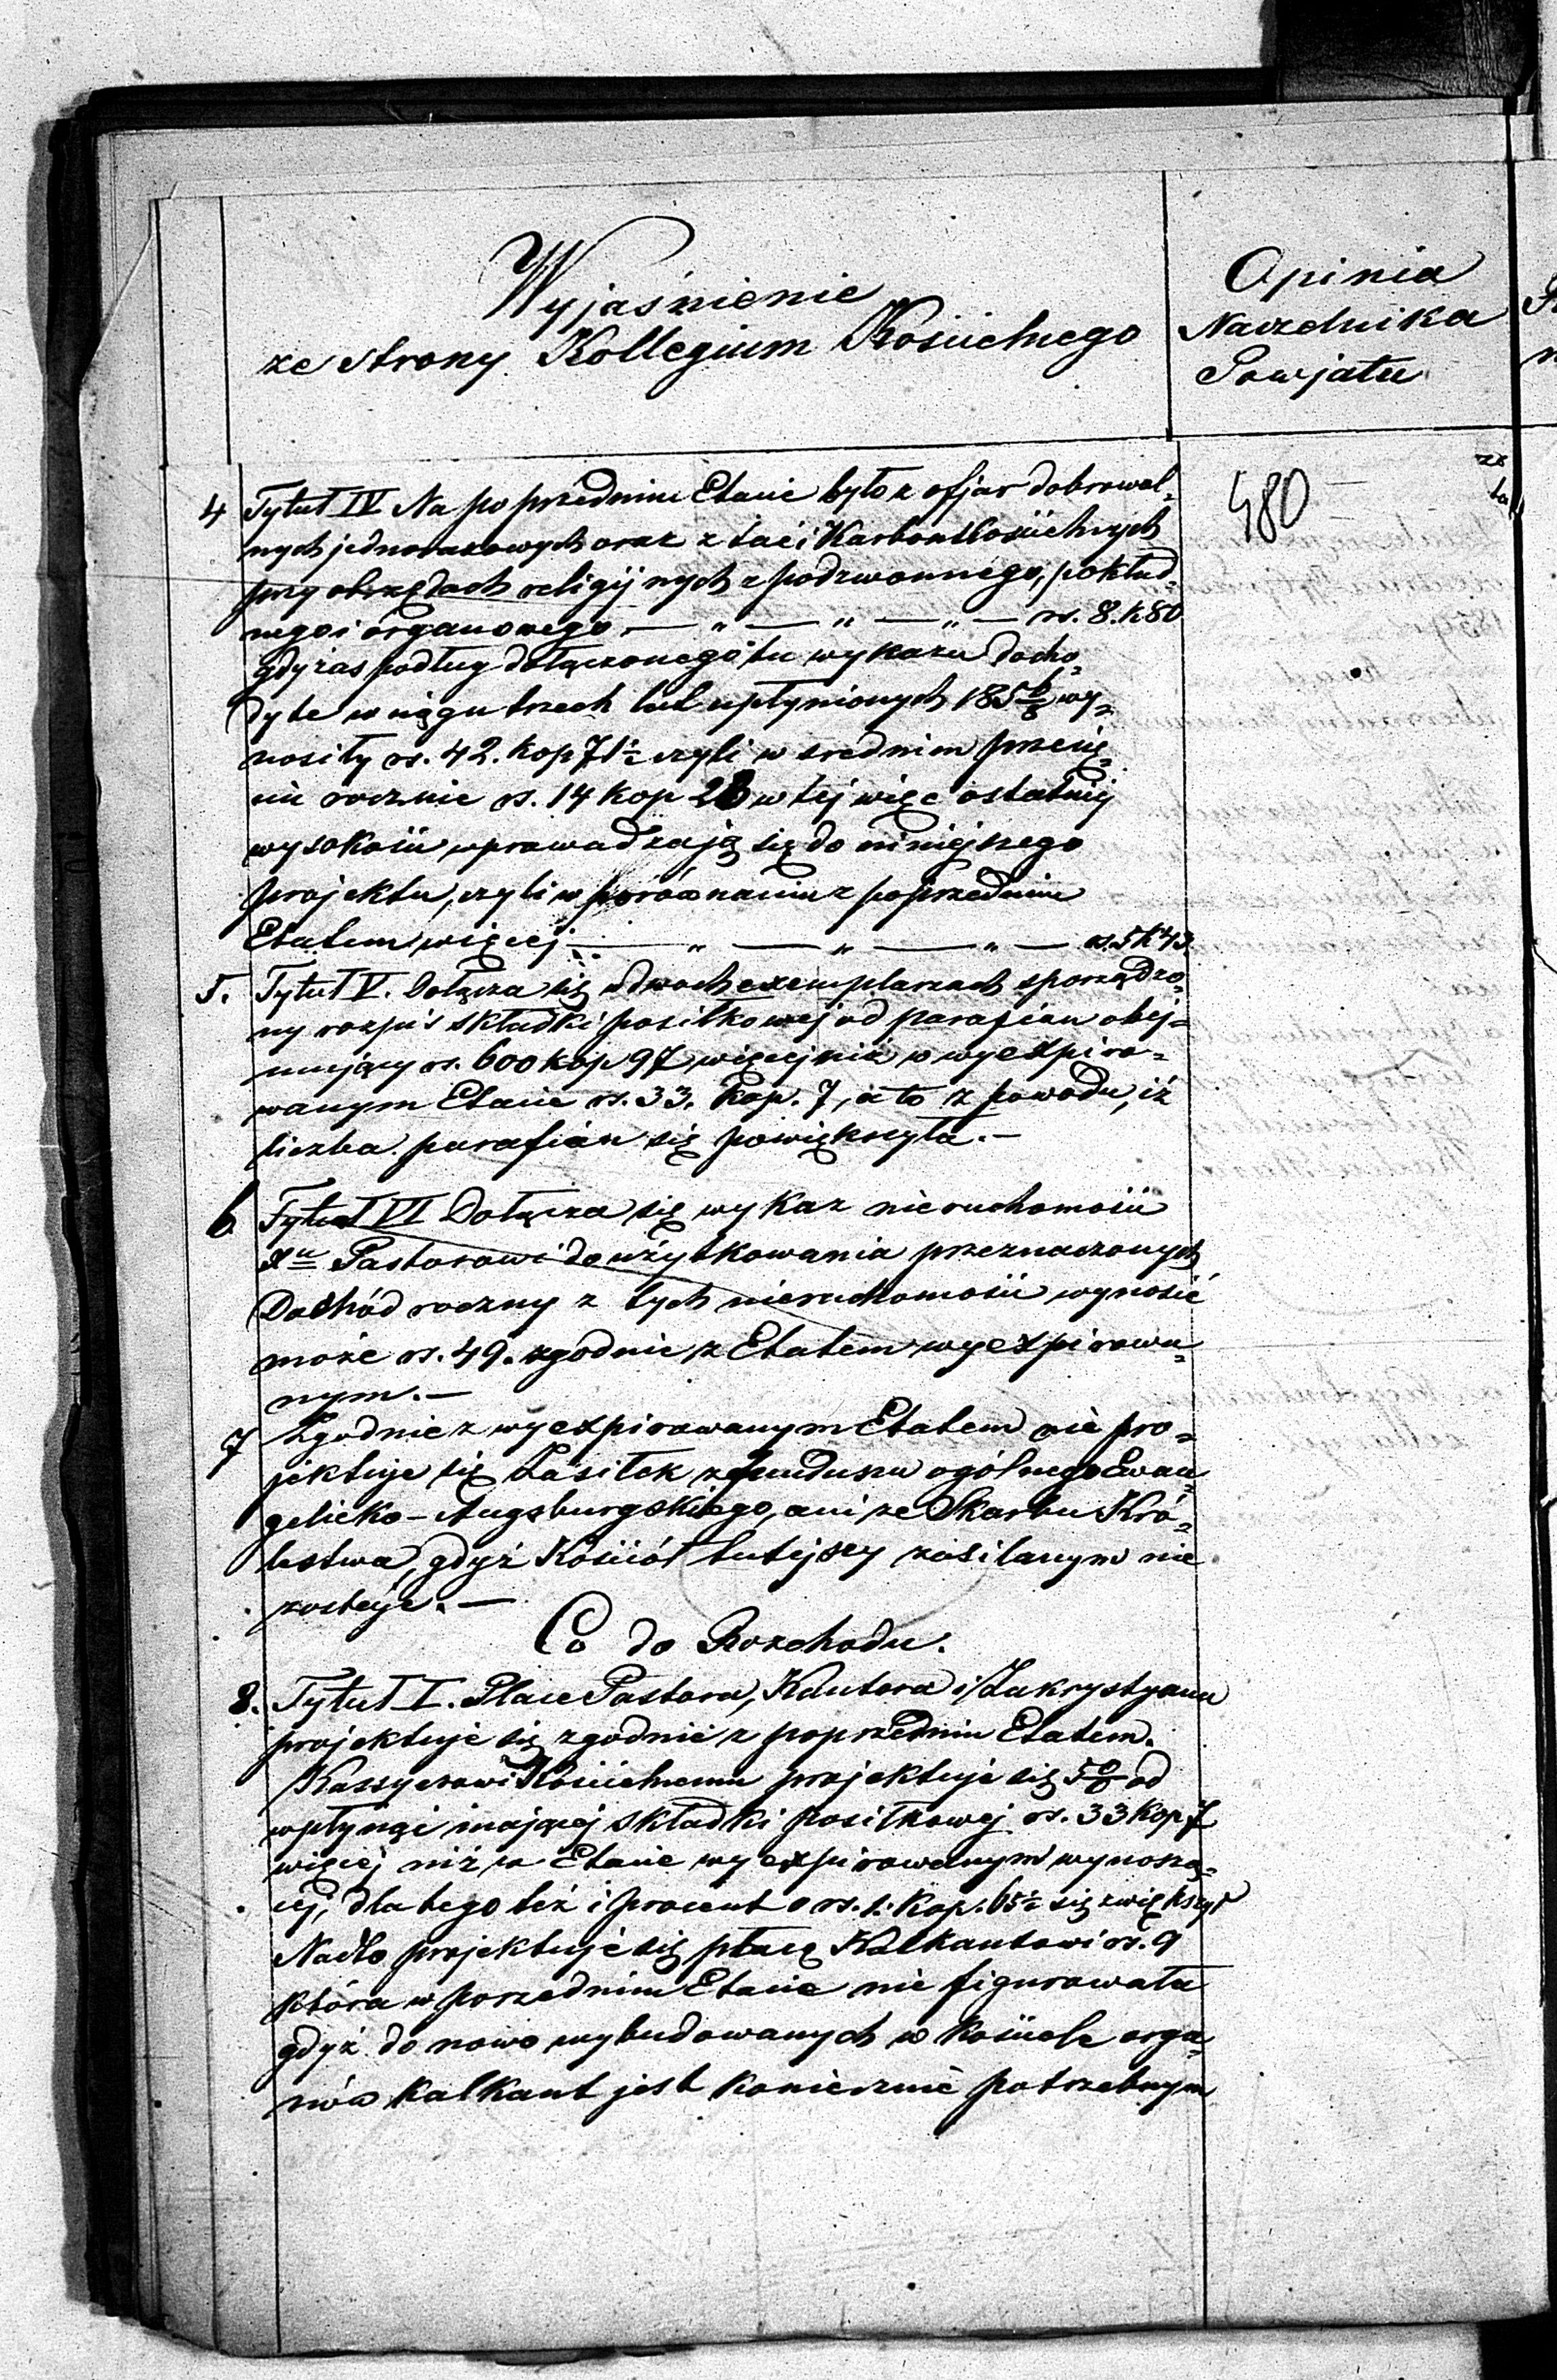 Wyjaśnienie
ze strony Kollegium Kościelnego
Opinia
Naczelnika
Powjatu
480
4 Tytuł IV Na poprzednim Etacie było z ofjar dobrowol=
nych jednorazowych oraz z tac i Karbon Kościelnych
przy obrzędach religijnych z podzwonnego, pokład=
nego i organowego — " — " — " — rs. 8. k 80
gdy zaś podług dołączonego tu wykazu docho=
dy te w ciągu trzech lat upłynionych 185 6/8 wy=
nosiły rs. 42. kop 71½ czyli w srednim przecię=
ciu rocznie rs. 14 kop 23 w tej więc ostatniej
wysokości wprowadzają się do niniejszego
projektu, czyli w porównaniu z poprzednim
Etatem więcej — " — " — " — rs. 5 k 43
5. Tytuł V. Dołącza się w dwoch exemplarzach sporządzo=
ny rozpis składki posiłkowej od parafian obej=
mujący rs. 600 kop 97 więcej niż w wyexpiro=
wanym Etacie rs. 33. kop. 7, a to z powodu, iż
liczba parafian się powiększyła. —
6 Tytuł VI Dołącza się wykaz nieruchomości
Xu Pastorowi do użytkowania przeznaczonych
Dochód roczny z tych nieruchomości wynosić
może rs. 49. zgodnie z Etatem wyexpirowa=
nym. —
7 Zgodnie z wyexpirowanym Etatem nie pro=
jektuje się Zasiłek z funduszu ogólnego Ewan=
gelicko-Augsburgskiego, ani ze Skarbu Kró=
lestwa, gdyż Kościół tutejszy zasilanym nie
zostaje. —
Co do Rozchodu.
8. Tytuł I. Płace Pastora, Kantora i Zakrystyana
projektuje się zgodnie z poprzednim Etatem.
Kassyerowi Kościelnemu projektuje się 5% od
wpłynąć mającej składki posiłkowej rs. 33 kop 7
więcej niż w Etacie wyexpirowanym wynoszą=
cej, dla tego też i procent o rs. 1. kop. 65½ się zwiększył
Nadto projektuje się płacę Kalkantowi rs. 9
która w porzednim Etacie nie figurowała
gdyż do nowo wybudowanych w Kościele orga=
nów kalkant jest koniecznie potrzebnym